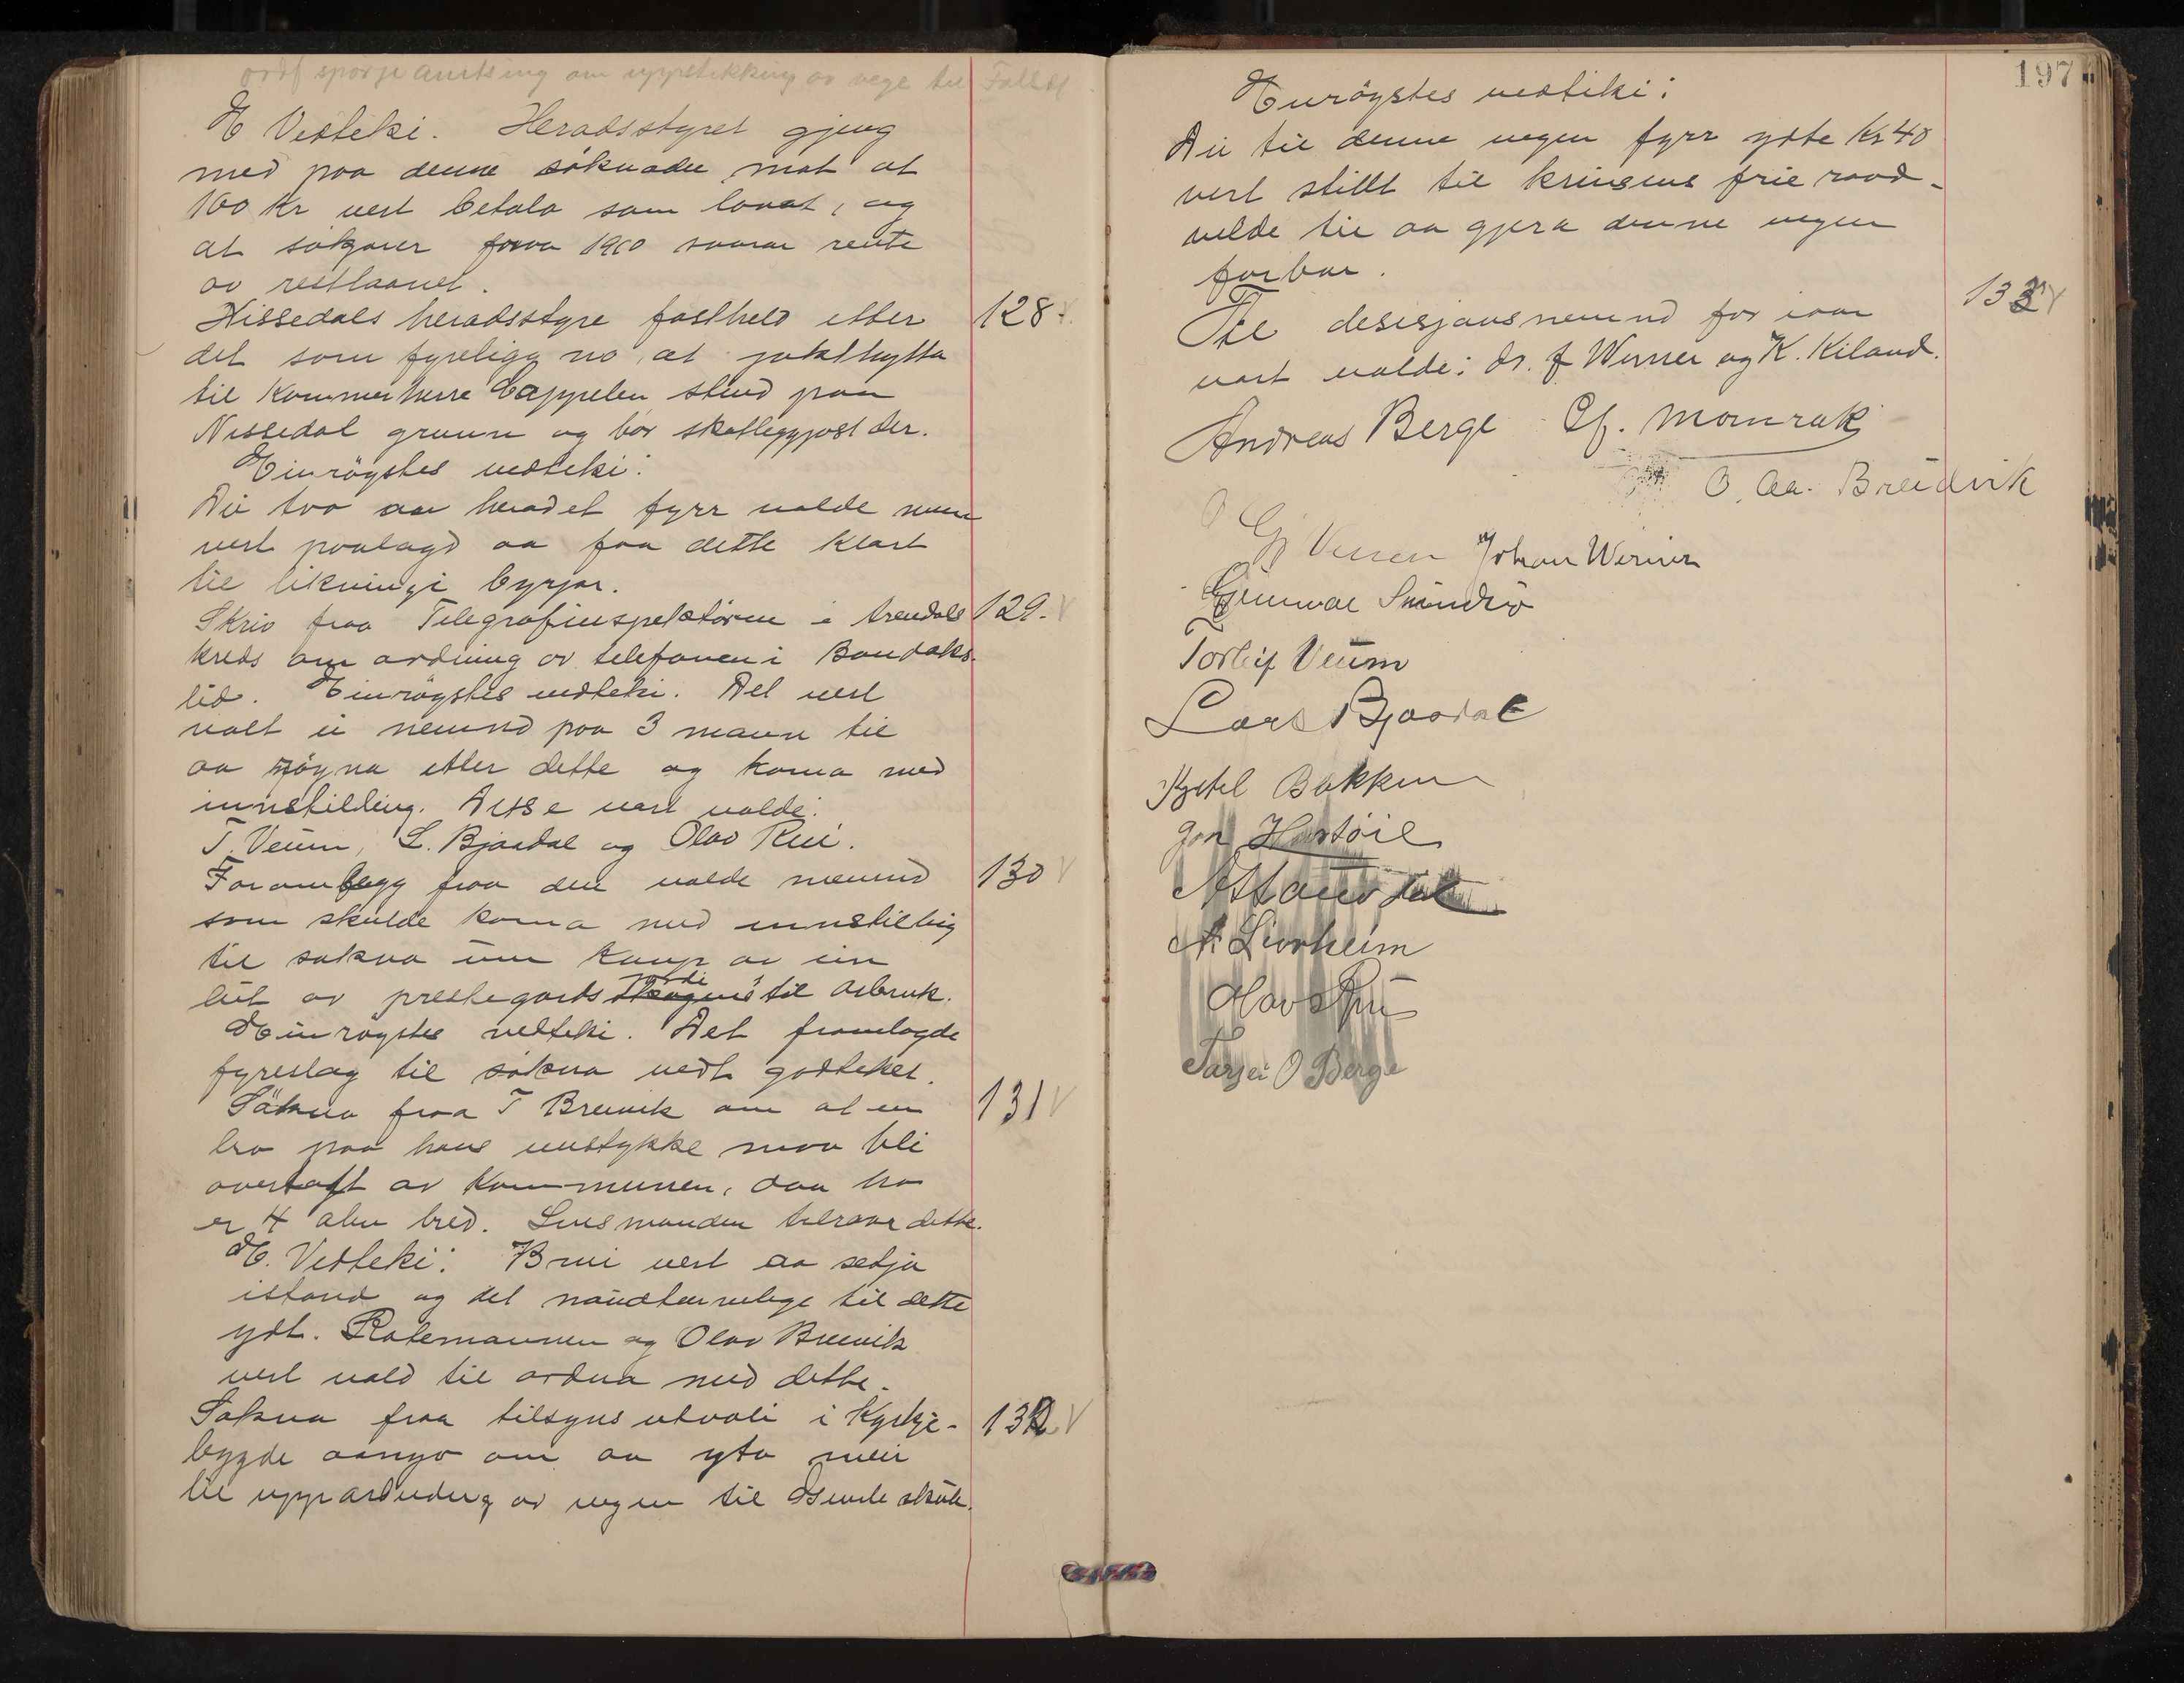 ordf spørje amtsing om uppstikking av vege til Fallhd
E Vedteki. Heradsstyret gjeng
med paa denne søknaden mot at
100 Kr vert betala som lovat, og
at søkjarer frwa 1910 svarar rente
av restlaanet.
Nissedals heradsstyre fastheld etter 128.
det som fyreligg no, at jakthytta
til Kammerherre Cappelen stend paa
Nissedal grunn og bør skattleggjast der.
Einrøystes vedteki:
Dei tvo av heradet fyrr valde menn
vert paalagd aa faa dette klart
til likningi byrjar.
Skriv fraa Telegrafinspektøren i Arendals 129. V
kreds om ordning av telefonen i Bandaks-
lid. Einrøystes vedteki. Det vert
valt ei nemnd paa 3 mann til
aa røyna etter dette og koma med
innstilling. Disse vart valde:
T. Veum, L. Bjaadal og Olav Rui.
Foramlegg fraa den valde nemnd 130 V
som skulde koma med innstilling
til søkna um kaup av ein
leit av prestegards jordi til Arbruk.
Einrøystes vedteki. Det framlagde
fyreslag til søkna vedt godteket.
Søknn fraa T Breivik om at en 131 V
bro paa hans veistykke maa bli
overtatt av Kommunen, daa bro
er 4 alen bred. Lensmanden tilraar dette.
E. Vedteki: Brui vert aa setja
istand og det naudturvelege til dette
ydt. Rodemannen og Olav Breivik
vert vald til ordna med dette.
Søkna fraa tilsyns utvali i Kyrkje- 132 V
bygde aango om aa yta meir
til upparbeiding av vegen til skule.
197
Einrøystes vedteki:
Dei til denne vegen fyrr ydte Kr 40
vert stillt til krinsens frie raad-
velde til aa gjera denne vegen
farbar.
Til desisjonsnemnd for iaar 133 V
vart valde: Dr. J Werner og K. Kiland.
Andreas Berge Ef. Momrak
O. Aa. Breidvik
Gj Veum Johan Werner
Gunnval
Torleif Veum
Lars Bjaadal
Kjetil Bakken
Jon
A. Livrheim
Olav Rui
Tarjei O Berge